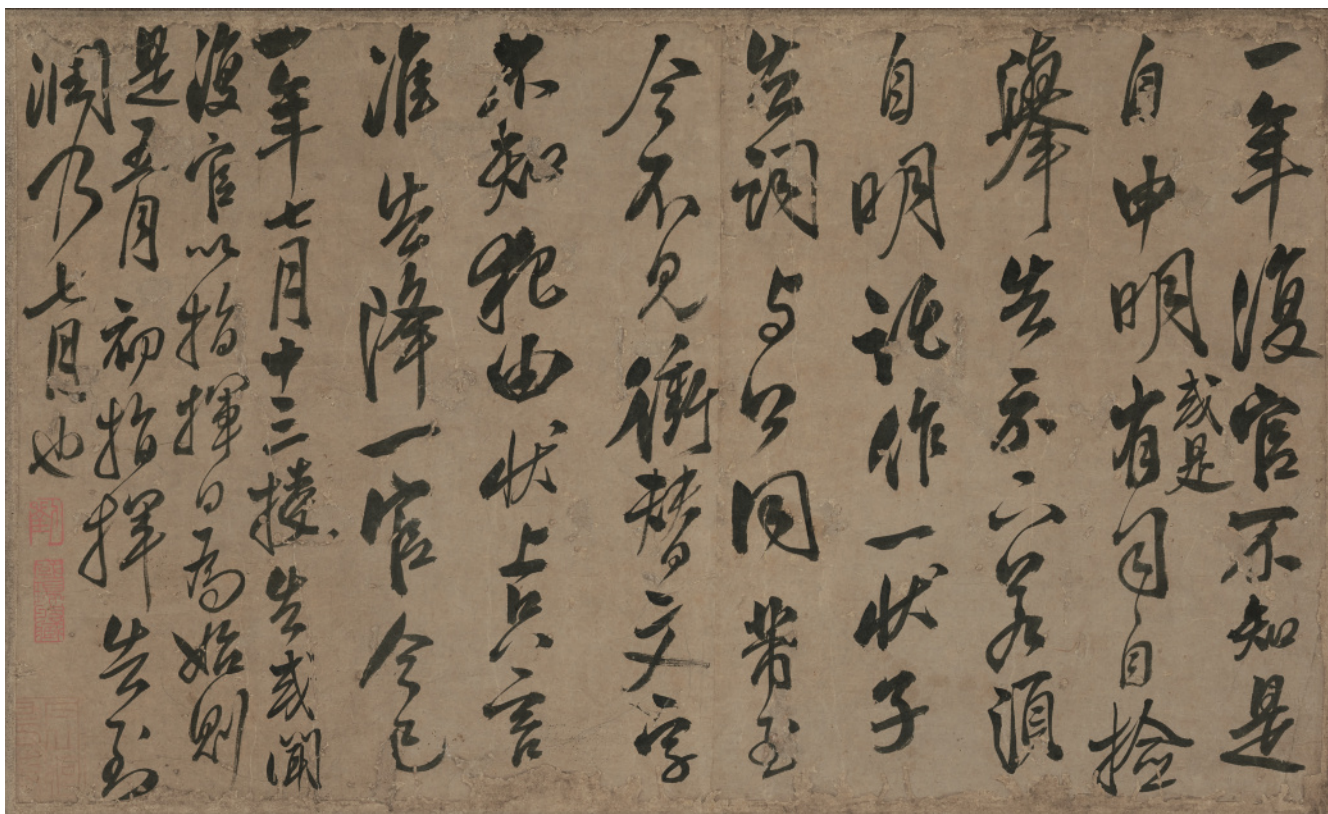 一年復官不知是
自申明或是有司自檢
舉告示下若須
自明託作一狀子
告詞与公同帶至
今不見衝替文字
不知犯由狀上只言
准告降一官今已
一年七月十三授告或聞
復官以指揮日為始則
是五月初指揮告到
潤乃七月也